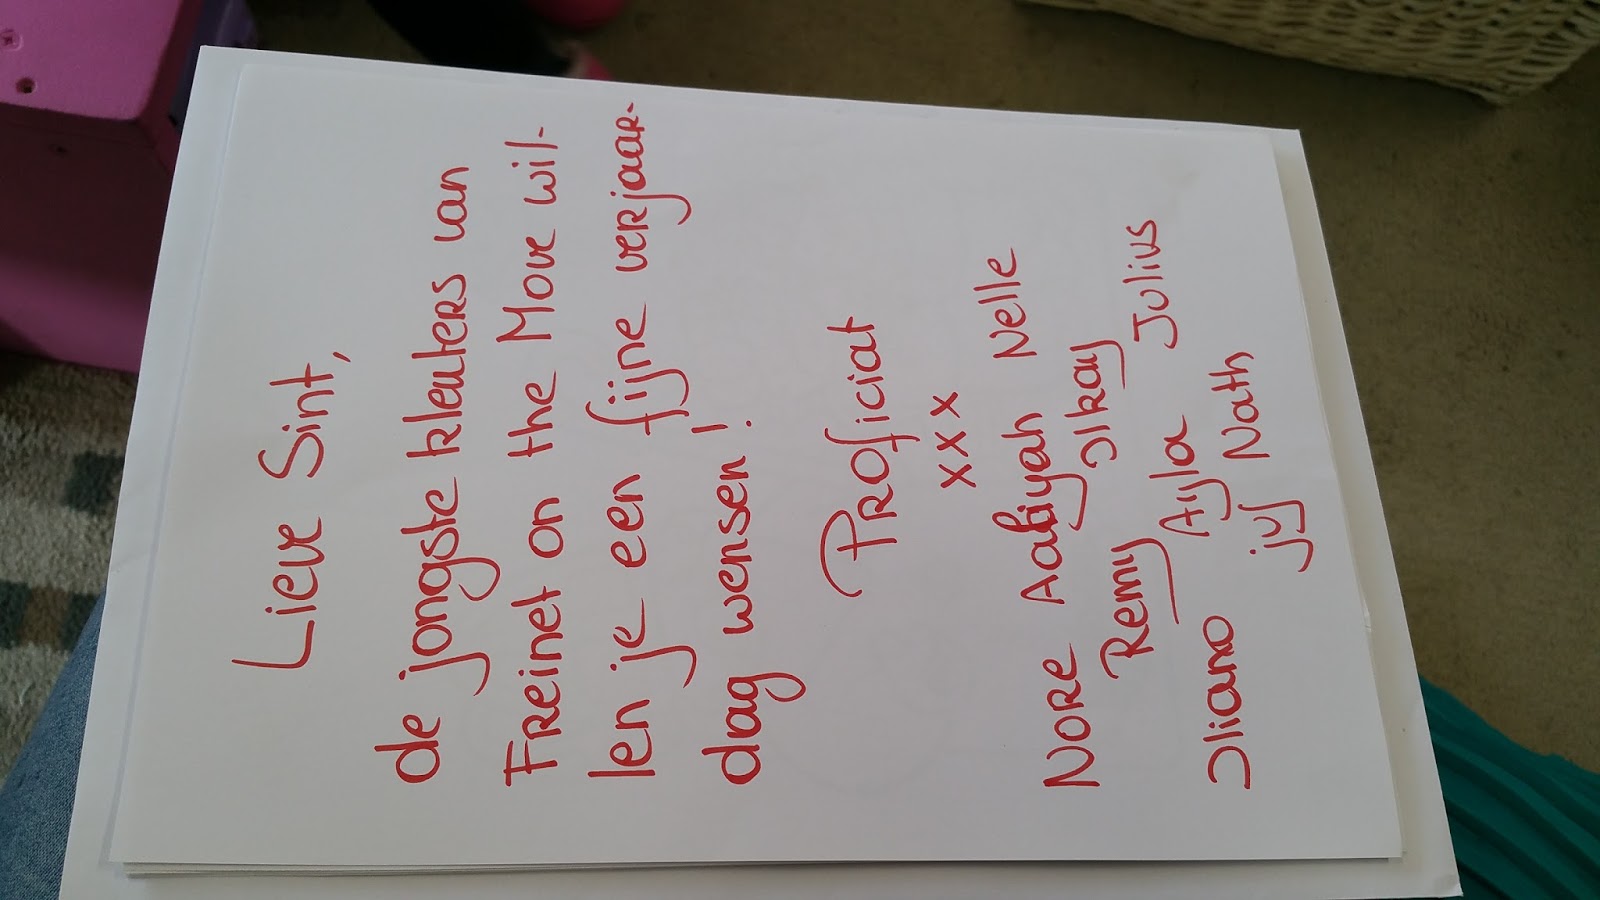 Lieve Sint,
de jongste kleuters van
Freinet on the Move wil-
len je een fijne verjaar-
dag wensen!
Proficiat
xxx
Nore Aaliyah Nelle
Remy Ilkay
Ayla Julius
Iliano juf Nath